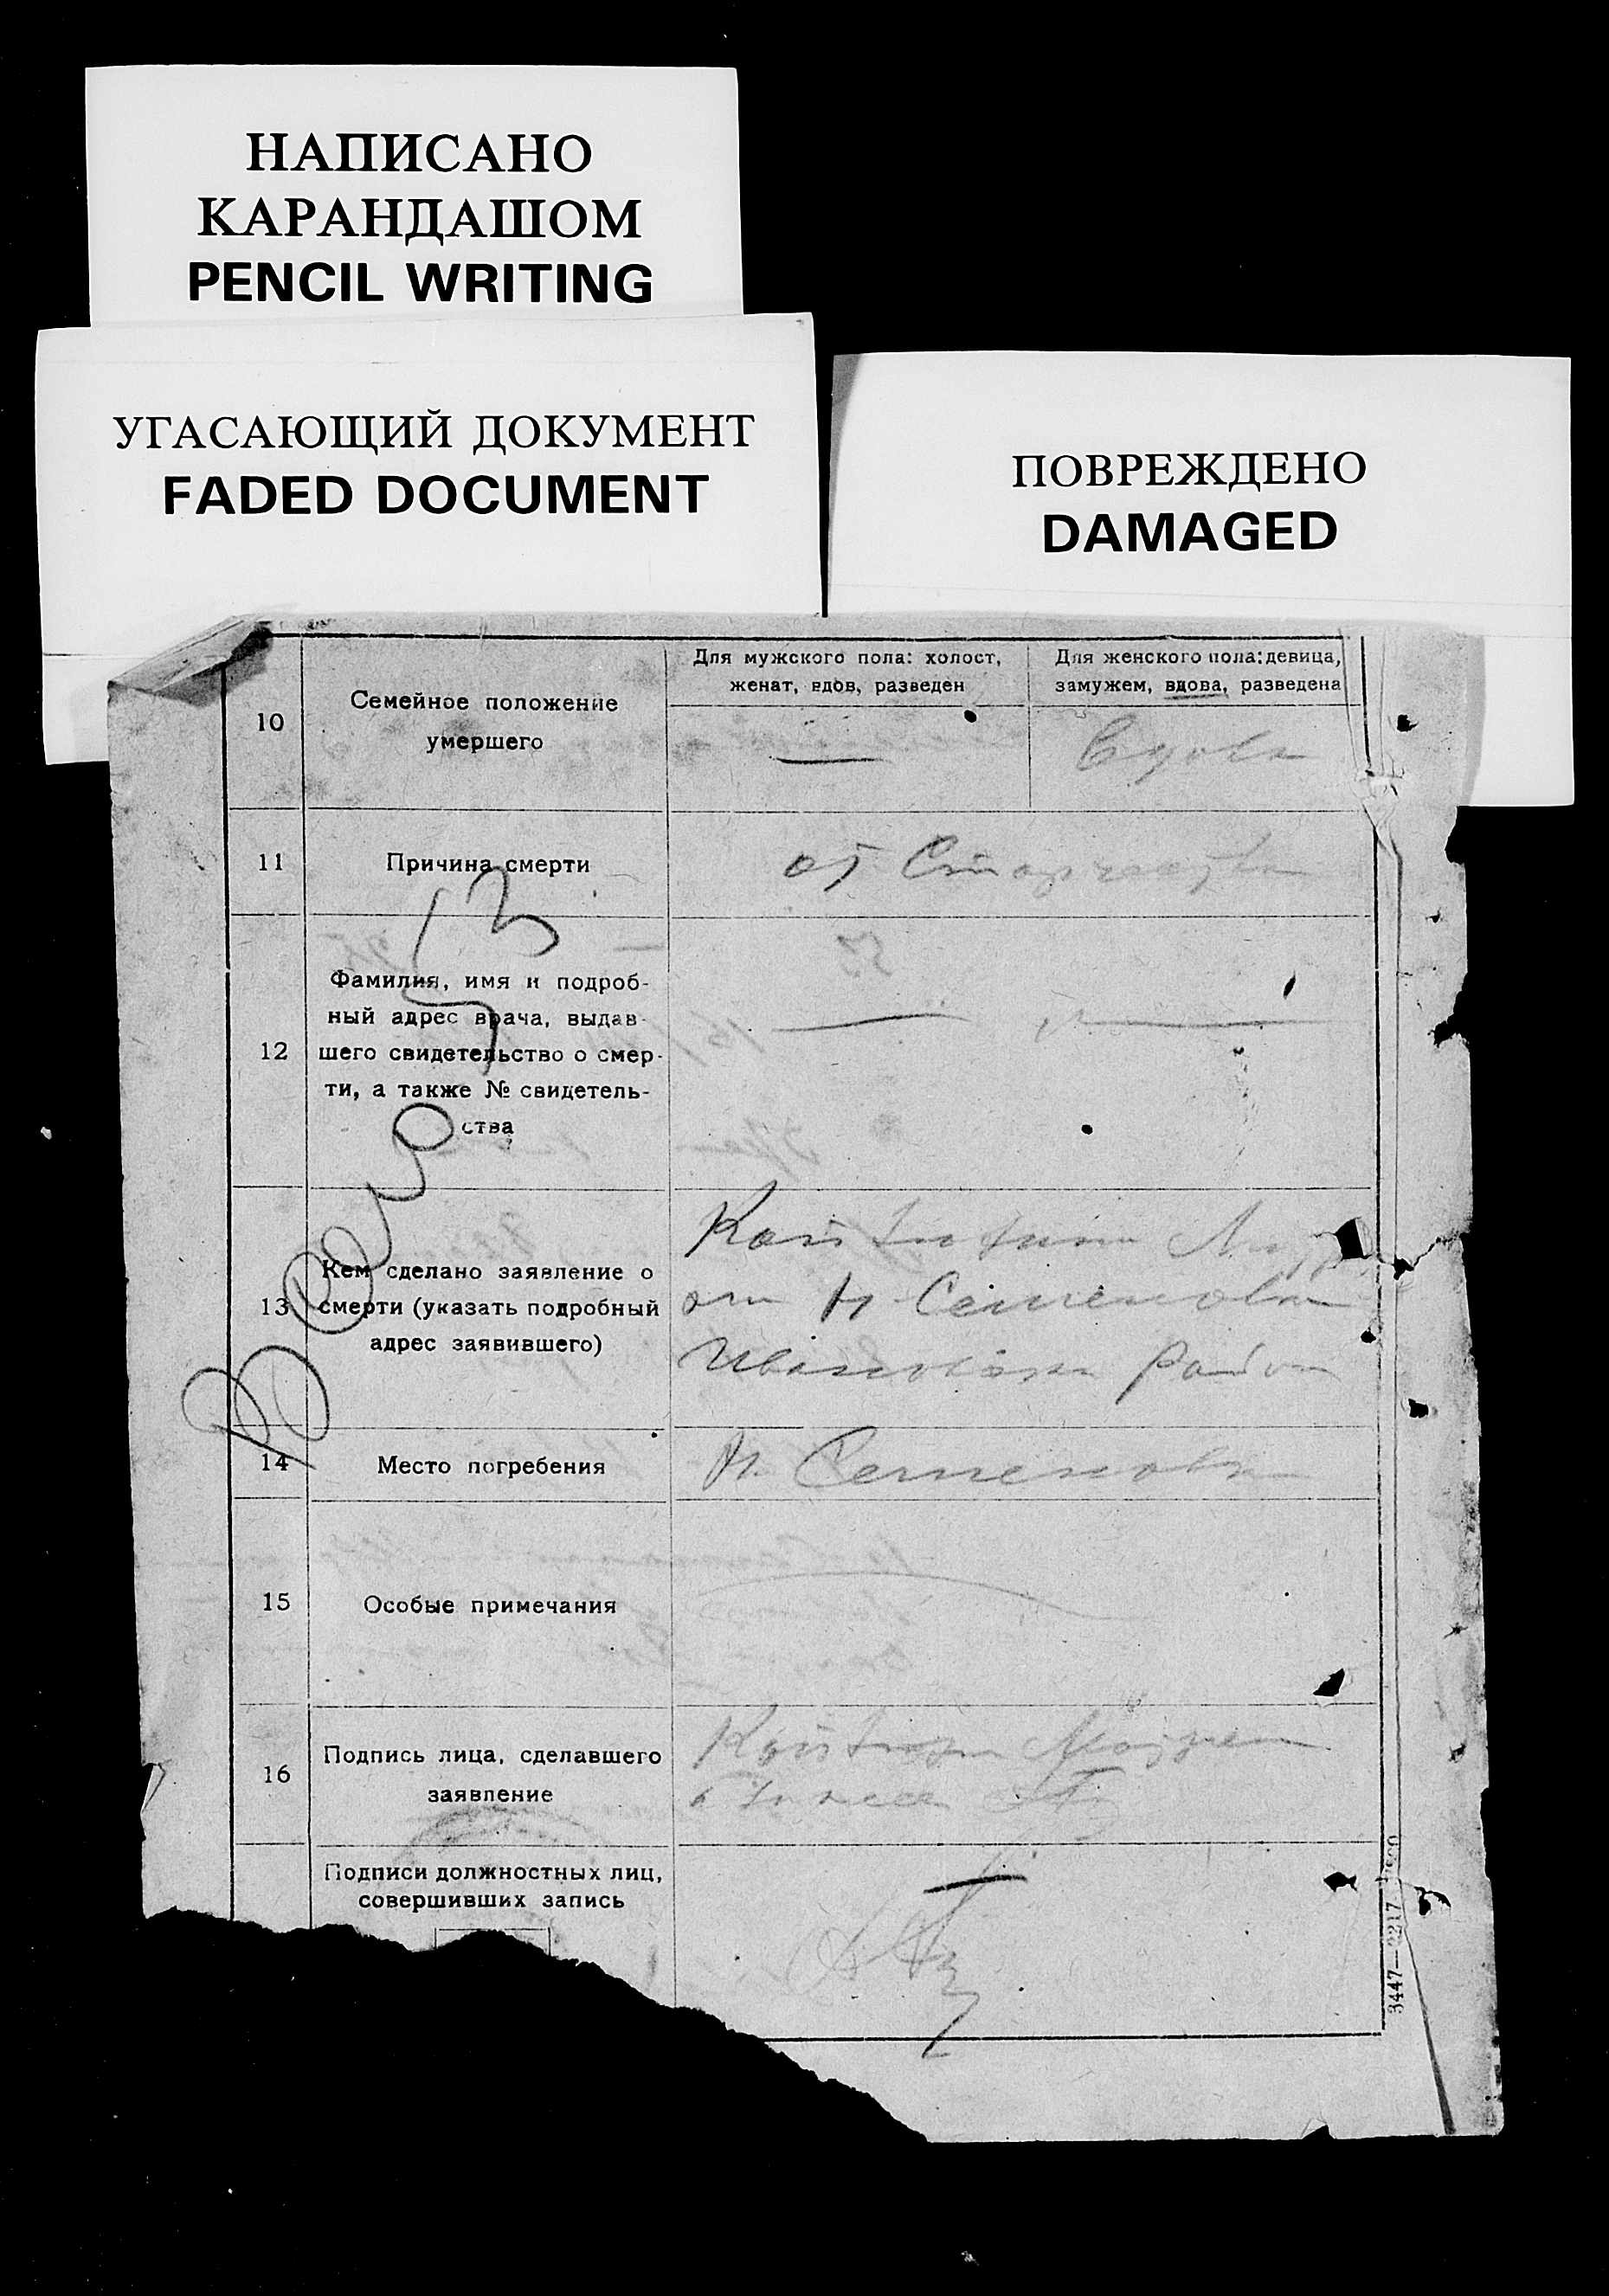 НАПИСАНО
КАРАНДАШОМ
PENCIL WRITING
УГАСАЮЩИЙ ДОКУМЕНТ
FADED DOCUMENT
ПОВРЕЖДЕНО
DAMAGED
10
Семейное положение
умершего
Для мужского пола: холост,
женат, вдов, разведен
Для женского пола: девица,
замужем, вдова, разведена
Вдова
11
Причина смерти
от Старчества
12
Фамилия, имя и подроб-
ный адрес врача, выдав-
шего свидетельство о смер-
ти, а также № свидетель-
ства
13
Кем сделано заявление о
смерти (указать подробный
адрес заявившего)
Н Семеновка
район
14
Место погребения
Н. Семеновка
15
Особые примечания
16
Подпись лица, сделавшего
заявление
Подписи должностных лиц,
совершивших запись
3447—2217